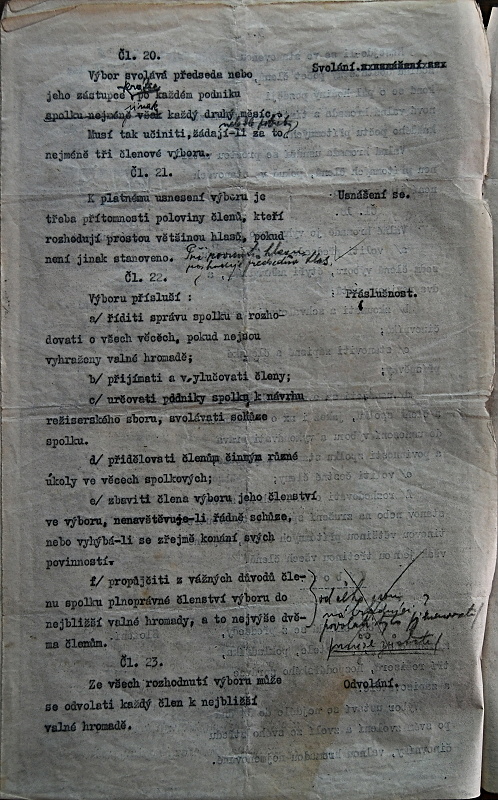 Čl. 20.
Výbor svolává předseda nebo
Svolání.
jeho zástupce po každém podniku
jinak
spolku nejméně však každý druhý měsíc.
Musí tak učiniti,žádají-li za to
nejméně tři členové výboru.
Čl. 21.
K platnému usnesení výboru je
Usnášení se.
třeba přítomnosti poloviny členů, kteří
rozhodují prostou většinou hlasů, pokud
není jinak stanoveno. Při rovnosti hlasů
rozhoduje předsedův hlas.
Čl. 22.
Výboru přísluší :
Příslušnost.
a/ říditi správu spolku a rozho-
dovati o všech věcech, pokud nejsou
vyhraženy valné hromadě;
b/ přijímati a vylučovati členy;
c/ určovati podniky spolku k návrhu
režiserského sboru, svolávati schůze
spolku.
d/ přidělovati členům činným různé
úkoly ve věcech spolkových;
e/ zbaviti člena výboru jeho členství
ve výboru, nenavštěvuje-li řádně schůze,
nebo vyhýbá-li se zřejmě konání svých
povinností.
f/ propůjčiti z vážných důvodů čle-
nu spolku plnoprávné členství výboru do
nejbližší valné hromady, a to nejvýše dvě-
ma členům.
Čl. 23.
Ze všech rozhodnutí výboru může
Odvolání.
se odvolati každý člen k nejbližší
valné hromadě.